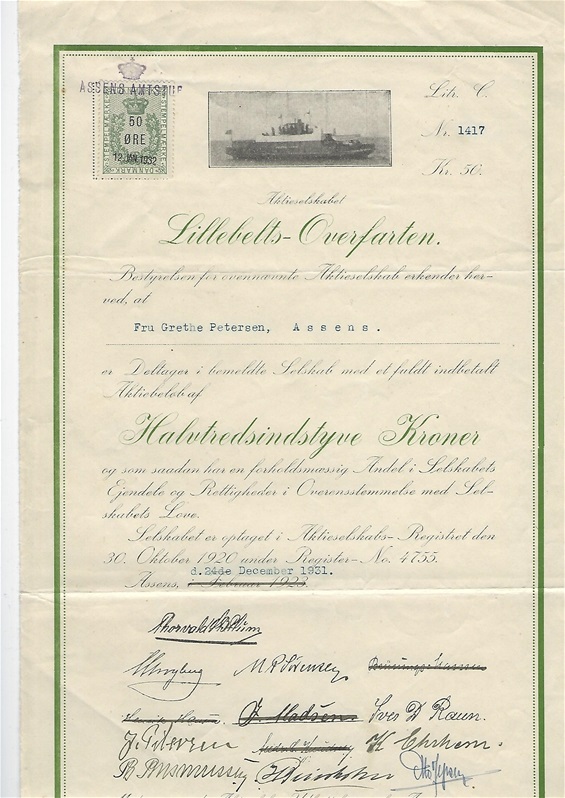 ASSENS AMTSTUE
STEMPELMÆRKE
50
ØRE
12 JAN 1932
DANMARK
Litr. C.
Nr. 1417
Kr. 50.
Aktieselskabet
Lillebelts-Overfarten.
Bestyrelsen for ovennævnte Aktieselskab erkender her-
ved, at
Fru Grethe Petersen, Assens.
er Deltager i bemeldte Selskab med et fuldt indbetalt
Aktiebeløb af
Halvtredsindstyve Kroner
og som saadan har en forholdsmæssig Andel i Selskabets
Ejendele og Rettigheder i Overensstemmelse med Sel-
skabets Love.
Selskabet er optaget i Aktieselskabs-Registret den
30. Oktober 1920 under Register-No. 4755.
d.24de December 1931.
Assens, i Februar 1923
Thorvald
M P Sørensen
J. Madsen Iver D Raun.
J. Petersen
B. Rasmussen